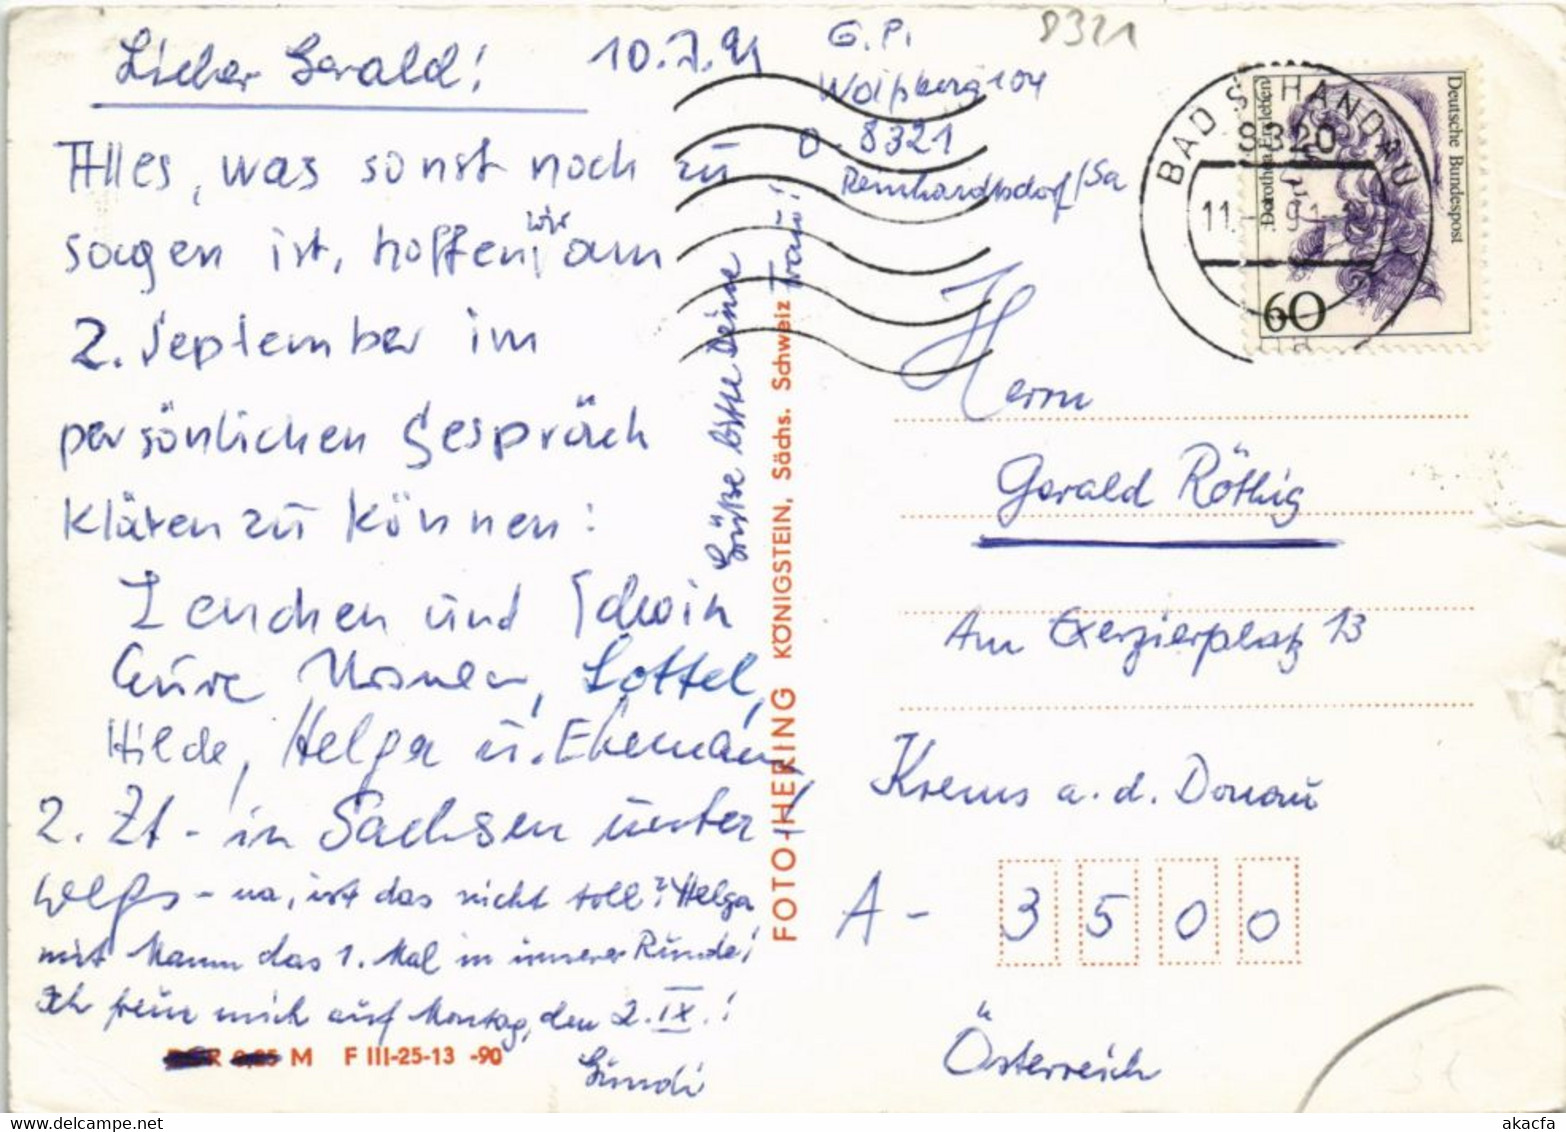 Lieber Gerald!
10.7.91
Alles, was sonst noch zu
sagen ist, hoffen wir am
2. September im
persönlichen Gespräch
klären zu können:
Lenchen und Edwin
Eure Ursula, Lottel,
Hilde, Helga u. Ehemann
z. Zt - in Sachsen unter-
wegs - na, ist das nicht toll? Helga
mit Mann das 1. Mal in unserer Runde!
Ich freue mich auf Montag, den 2. IX.!
Gundi
Grüße bitte Deine
Frau!
M F III-25-13 -90
FOTO-HERING KÖNIGSTEIN, Sächs. Schweiz
G. P.
104
O - 8321
Reinhardtsdorf/Sa
8321
BAD SCHANDAU
8320
11. 91
Deutsche Bundespost
Dorothea Erxleben
60
Herrn
Gerald Röthig
Am Exerzierplatz 13
Krems a. d. Donau
A - 3500
Österreich
www.delcampe.net
akacfa